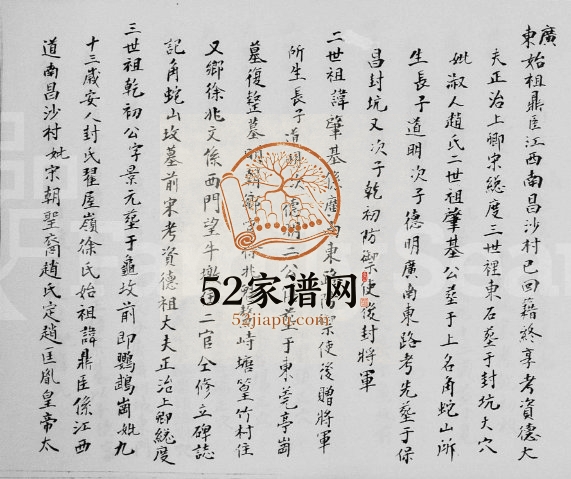 廣
東始祖鼎臣江西南昌沙村已回籍終享考資德大
夫正治上卿宋總度三世裡東石塟于封坑大穴
妣淑人趙氏二世祖肇基公塟于上名角蛇山所
生長子道明次子德明廣南東路考先塟于保
昌封坑又次子乾初防禦使後封將軍
二世祖諱肇基 應 南東路 禦使後贈將軍
所生長子道明次德明二公 塟于東莞亭崗
墓復整墓 朝鄉 徐兆 塘篁竹村住
又鄉徐兆文係西門望牛墩 二官仝修立碑誌
記角蛇山坟墓前宋考資德祖大夫正治上卿總度
三世祖乾初公字景元塟于龜坟前即鸚鵡崗妣九
十三歲安人封氏翟屋嶺徐氏始祖諱鼎臣係江西
道南昌沙村妣宋朝聖裔趙氏定趙匡胤皇帝太
52家谱网
52jiapu.com